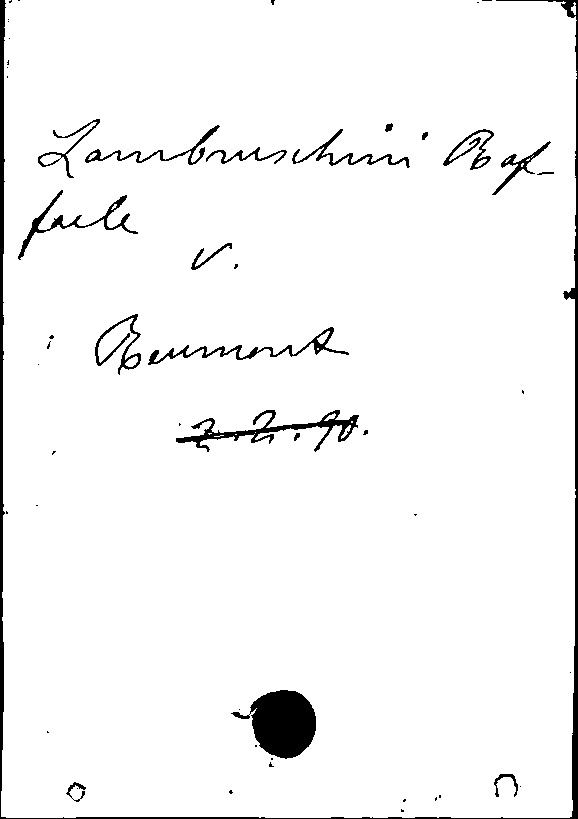 Lambruschini Raf-
faele
v.
Reumont
2.2.90.